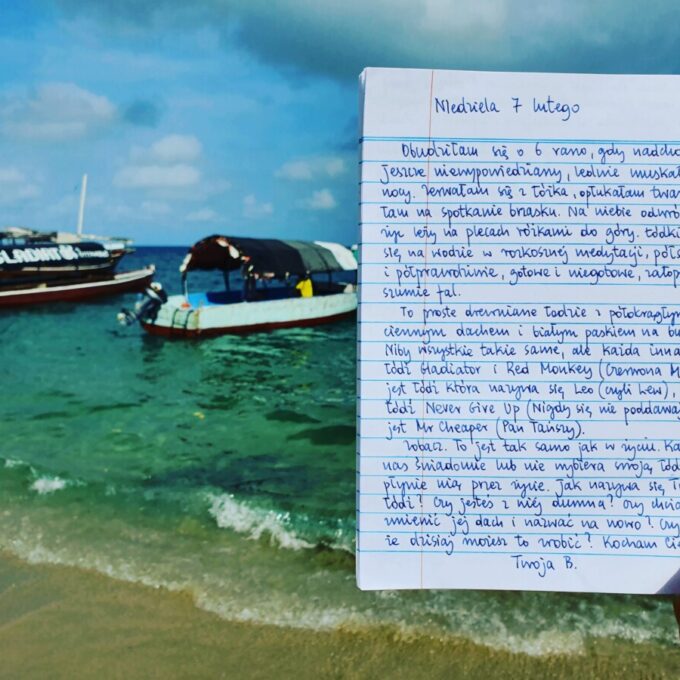 GLADIATOR
Niedziela 7 lutego
Obudziłam się o 6 rano, gdy nadcho
jeszcze niewypowiedziany, ledwie muskał
nocy. Zerwałam się z łóżka, opłukałam twar
łam na spotkanie brzasku. Na niebie odwró
życ leży na plecach rożkami do góry. Łódki
się na wodzie w rozkosznej medytacji, półs
i półprawdziwie, gotowe i niegotowe, zatop
szumie fal.
To proste drewniane łodzie z półokrągłym
ciemnym dachem i białym paskiem na bu
Niby wszystkie takie same, ale każda inna
łódź Gladiator i Red Monkey (Czerwona M
jest łódź która nazywa się Leo (czyli Lew),
łódź Never Give Up (Nigdy się nie poddawa
jest Mr Cheaper (Pan Tańszy).
Zobacz. To jest tak samo jak w życiu. Ka
nas świadomie lub nie wybiera swoją łód
płynie nią przez życie. Jak nazywa się T
łódź? Czy jesteś z niej dumna? Czy chcia
zmienić jej dach i nazwać na nowo? Czy
ie dzisiaj możesz to zrobić? Kocham Ci
Twoja B.